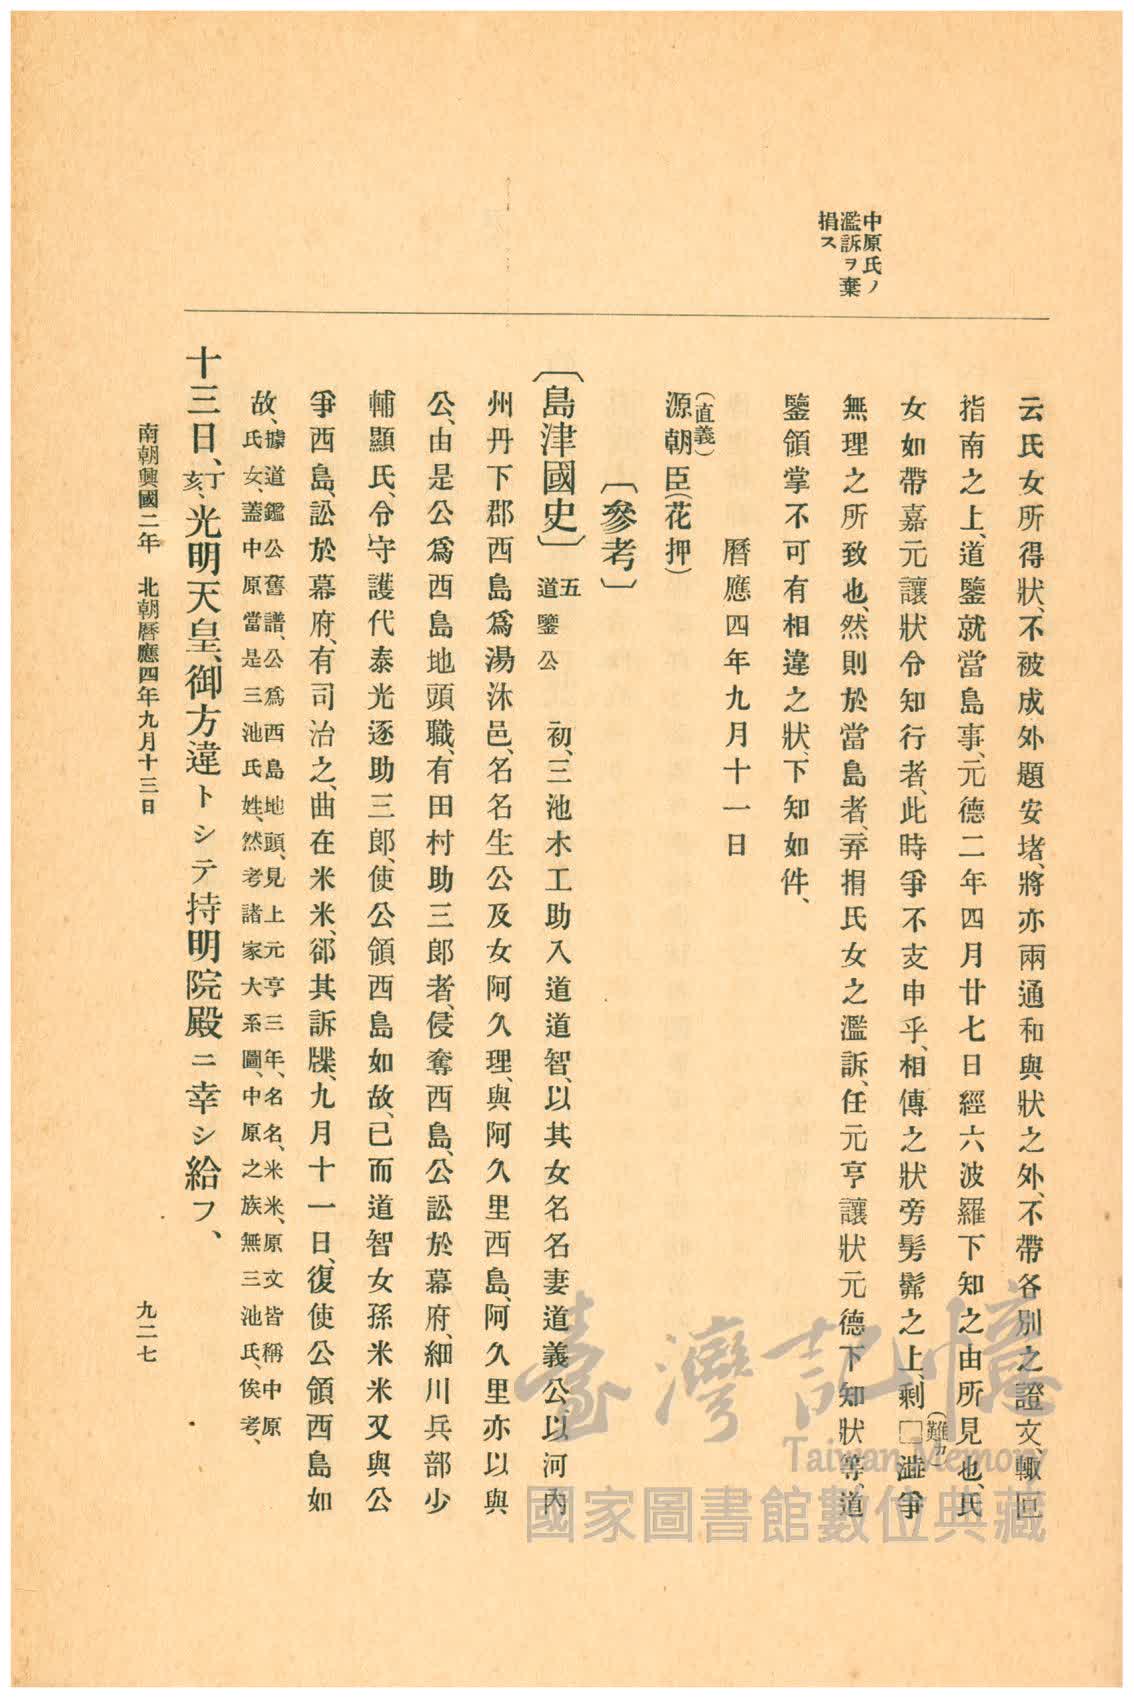 中原氏ノ
濫訴ヲ棄
捐ス
云氏女所得狀、不被成外題安堵、將亦兩通和與狀之外、不帶各別之證文輙叵
指南之上、道鑒就當島事、元德二年四月廿七日經六波羅下知之由所見也、氏
女如帶嘉元讓狀令知行者、此時爭不支申乎、相傳之狀旁髣髴之上、剩□(難カ)澁爭
無理之所致也、然則於當島者、弃捐氏女之濫訴、任元亨讓狀元德下知狀等、道
鑒領掌不可有相違之狀、下知如件、
曆應四年九月十一日
源朝臣(花押)
(直義)
〔參考〕
〔島津國史〕五 道鑒公 初、三池木工助入道道智、以其女名名妻道義公、以河內
州丹下郡西島爲湯沐邑、名名生公及女阿久理、與阿久里西島、阿久里亦以與
公、由是公爲西島地頭職、有田村助三郎者、侵奪西島、公訟於幕府、細川兵部少
輔顯氏、令守護代泰光逐助三郎、使公領西島如故、已而道智女孫米米又與公
爭西島、訟於幕府、有司治之、曲在米米、郤其訴牒、九月十一日、復使公領西島如
故、據道鑑公舊譜、公爲西島地頭、見上元亨三年、名名、米米、原文皆稱中原
氏女、蓋中原當是三池氏姓、然考諸家大系圖、中原之族無三池氏、俟考、
十三日、丁亥、光明天皇、御方違トシテ持明院殿ニ幸シ給フ、
南朝興國二年 北朝曆應四年九月十三日
九二七
臺灣記憶
Taiwan Memory
國家圖書館數位典藏